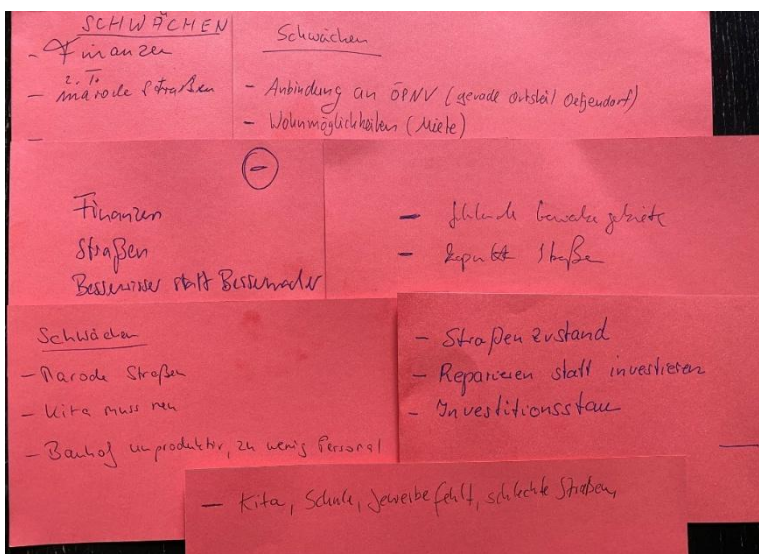 SCHWÄCHEN
- Finanzen
- z. T. marode Straßen
-
Schwächen
- Anbindung an ÖPNV (gerade Ortsteil Oetjendorf)
- Wohnmöglichkeiten (Miete)
-
Finanzen
Straßen
Besserwisser statt Bessermacher
- fehlende Gewerbegebiete
- kaputte Straße
Schwächen
- Marode Straßen
- Kita muss neu
- Bauhof unproduktiv, zu wenig Personal
- Straßenzustand
- Reparieren statt investieren
- Investitionsstau
- Kita, Schule, Gewerbe fehlt, schlechte Straßen,